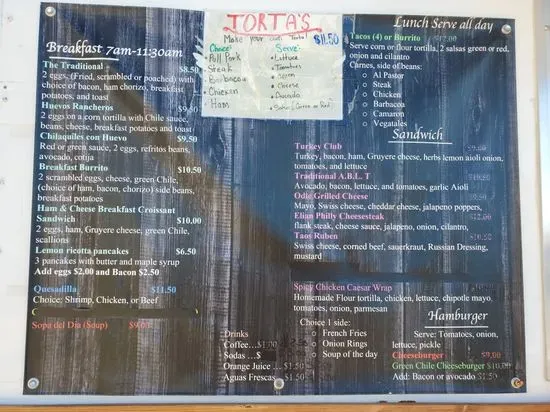 Breakfast 7am-11:30am
The Traditional - $8.50
2 eggs, (Fried, scrambled or poached) with
choice of bacon, ham chorizo, breakfast
potatoes, and toast
Huevos Rancheros $9.50
2 eggs on a corn tortilla with Chile sauce,
beans, cheese, breakfast potatoes and toast
Chilaquiles con Huevo $9.50
Red or green sauce, 2 eggs, refritos beans,
avocado, cotija
Breakfast Burrito $9.50
2 scrambled eggs, cheese, green Chile,
(choice of ham, bacon, chorizo) side beans,
breakfast potatoes
Ham & Cheese Breakfast Croissant
Sandwich $10.00
2 eggs, ham, Gruyere cheese, green Chile,
scallions
Lemon ricotta pancakes $6.50
3 pancakes with butter and maple syrup
Add eggs $2.00 and Bacon $2.50
Quesadilla $11.50
Choice: Shrimp, Chicken, or Beef
Sopa del Dia (Soup) $9.00
TORTA'S
Make your own Torta! $11.50
Choice: Serve:
Pull Pork • Lettuce
Steak • Tomatoes
Barbacoa
Chicken • Cheese
Ham • Avocado
Green or Red
Drinks
Coffee…$1.00
Sodas …$
Orange Juice … $1.50
Aguas Frescas …$1.50
Lunch Serve all day
Tacos (4) or Burrito
Serve corn or flour tortilla, 2 salsas green or red,
onion and cilantro
Carnes, side of beans:
o Al Pastor
o Steak
o Chicken
o Barbacoa
o Camaron
o Vegatales
Sandwich
Turkey Club $9.00
Turkey, bacon, ham, Gruyere cheese, herbs lemon aioli onion,
tomatoes, and lettuce
Traditional A.B.L. T $10.50
Avocado, bacon, lettuce, and tomatoes, garlic Aioli
Odie Grilled Cheese
Mayo, Swiss cheese, cheddar cheese, jalapeno poppers,
Elian Philly Cheesesteak $12.00
flank steak, cheese sauce, jalapeno, onion, cilantro,
Taos Ruben $10.50
Swiss cheese, corned beef, sauerkraut, Russian Dressing,
mustard
Spicy Chicken Caesar Wrap
Homemade Flour tortilla, chicken, lettuce, chipotle mayo,
tomatoes, onion, parmesan
Choice 1 side:
o French Fries
o Onion Rings
o Soup of the day
Hamburger
Serve: Tomatoes, onion,
lettuce, pickle
Cheeseburger $9.00
Green Chile Cheeseburger $10.00
Add: Bacon or avocado $1.50